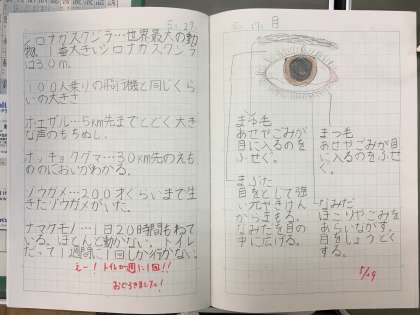 5.27
シロナガスクジラ…世界最大の動
物。1番大きいシロナガスクジラ
は30m。
100人乗りの飛行機と同じくら
いの大きさ
ホエザル…5km先までとどく大き
な声のもちぬし。
ホッキョクグマ…30km先のえも
ののにおいがわかる。
ゾウガメ…200才くらいまで生
きたゾウガメがいた。
ナマケモノ…1日20時間もねて
いる。ほとんど動かない。トイレ
だって1週間に1回しか行かない。
えー!トイレが週に1回!!
おどろきました!
目
まゆ毛
あせやごみが
目に入るのを
ふせぐ。
まぶた
目をとじて強
い光やきけん
からまもる。
なみだを目の
中に広げる。
まつ毛
あせやごみが目
に入るのをふせ
ぐ。
なみだ
ほこりやごみを
あらいながす。
目をしょうどく
する。
5/29